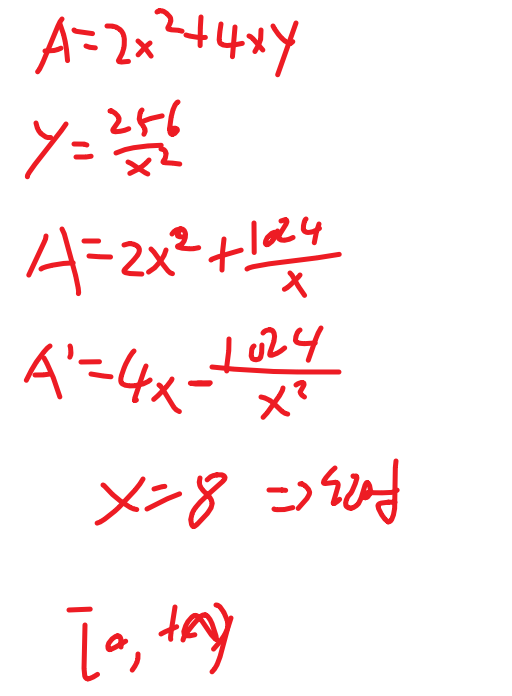 A=2x²+4xy
y=256/x²
A=2x²+1024/x
A'=4x-1024/x²
x=8 =>
[0, +∞)